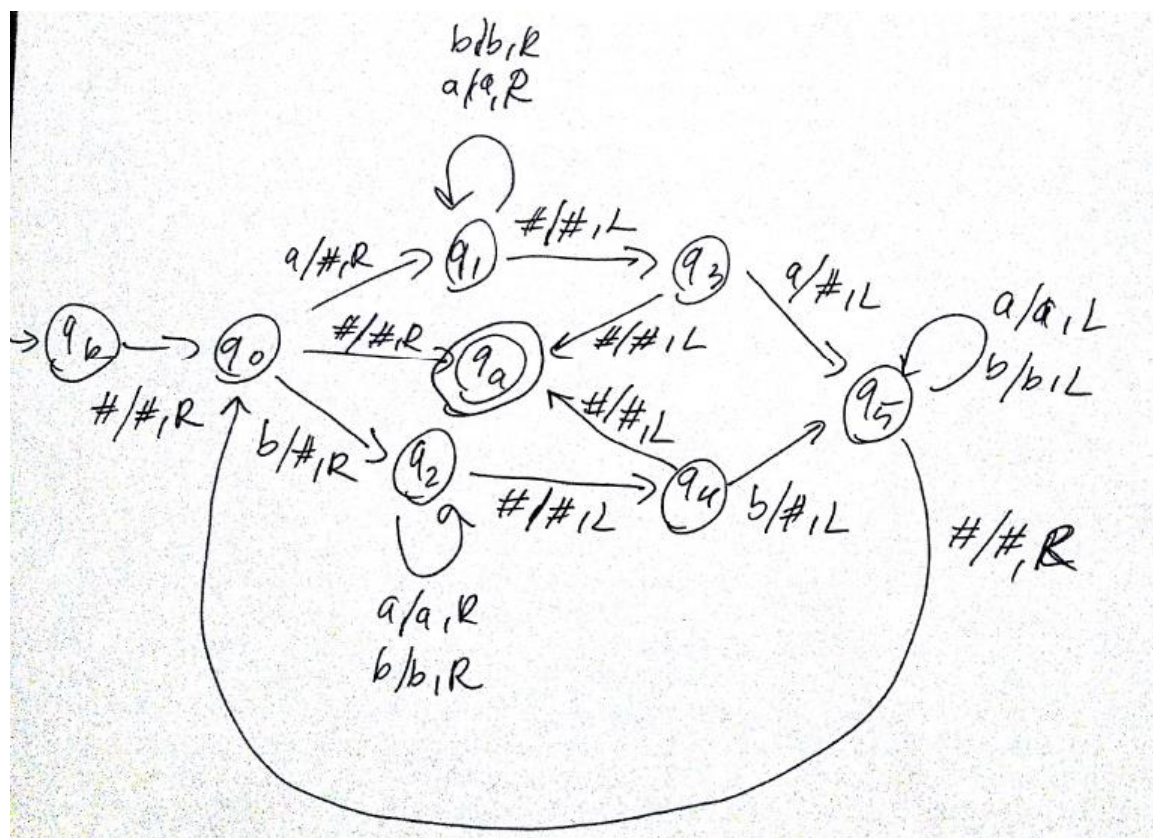 b/b,R
a/a,R
#/#,L
q1
q3
a/#,R
a/#,L
a/a,L
b/b,L
qb
q0
#/#,R
qa
#/#,L
q5
#/#,R
#/#,L
b/#,R
q2
q4
#/#,L
b/#,L
#/#,R
a/a,R
b/b,R